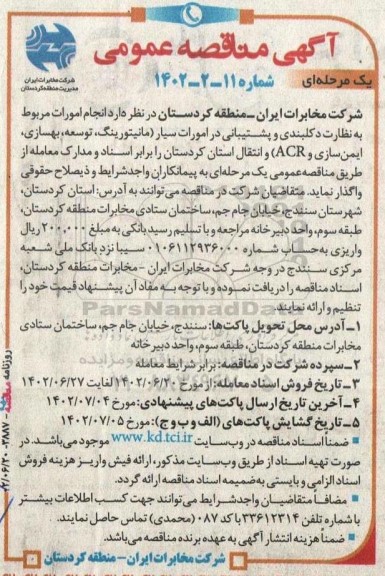 آگهی مناقصه عمومی
یک مرحله‌ای
شماره ۱۱-۲-۱۴۰۲
شرکت مخابرات ایران
مدیریت منطقه کردستان
شرکت مخابرات ایران – منطقه کردستان در نظر دارد انجام امورات مربوط
به نظارت دکلبندی و پشتیبانی در امورات سیار (مانیتورینگ، توسعه، بهسازی،
ایمن‌سازی و ACR) و انتقال استان کردستان را برابر اسناد و مدارک معامله از
طریق مناقصه عمومی یک مرحله‌ای به پیمانکاران واجدشرایط و ذیصلاح حقوقی
واگذار نماید. متقاضیان شرکت در مناقصه می‌توانند به آدرس: استان کردستان،
شهرستان سنندج، خیابان جام جم، ساختمان ستادی مخابرات منطقه کردستان،
طبقه سوم، واحد دبیرخانه مراجعه و با تسلیم رسید بانکی به مبلغ ۲۰۰.۰۰۰ ریال
واریزی به حساب شماره ۰۱۰۶۱۱۲۹۳۶۰۰۰ سیبا نزد بانک ملی شعبه
مرکزی سنندج در وجه شرکت مخابرات ایران – مخابرات منطقه کردستان،
اسناد مناقصه را دریافت نموده و با توجه به مفاد آن پیشنهاد قیمت خود را
تنظیم و ارائه نمایند.
۱– آدرس محل تحویل پاکت‌ها: سنندج، خیابان جام جم، ساختمان ستادی
مخابرات منطقه کردستان، طبقه سوم، واحد دبیرخانه
۲– سپرده شرکت در مناقصه: برابر شرایط معامله
۳– تاریخ فروش اسناد معامله: از مورخ ۱۴۰۲/۰۶/۲۰ لغایت ۱۴۰۲/۰۶/۲۷
۴– آخرین تاریخ ارسال پاکت‌های پیشنهادی: مورخ ۱۴۰۲/۰۷/۰۴
۵– تاریخ گشایش پاکت‌های (الف و ب و ج): مورخ ۱۴۰۲/۰۷/۰۵
ضمناً اسناد مناقصه در وب‌سایت www.kd.tci.ir موجود می‌باشد. در
صورت تهیه اسناد از طریق وب‌سایت مذکور، ارائه فیش واریز هزینه فروش
اسناد الزامی و بایستی به ضمیمه اسناد مناقصه ارائه گردد.
مضافاً متقاضیان واجدشرایط می‌توانند جهت کسب اطلاعات بیشتر
با شماره تلفن ۳۳۶۱۲۳۱۴ با کد ۰۸۷ (محمدی) تماس حاصل نمایند.
ضمناً هزینه انتشار آگهی به عهده برنده مناقصه می‌باشد.
شرکت مخابرات ایران – منطقه کردستان
ParsNamadData